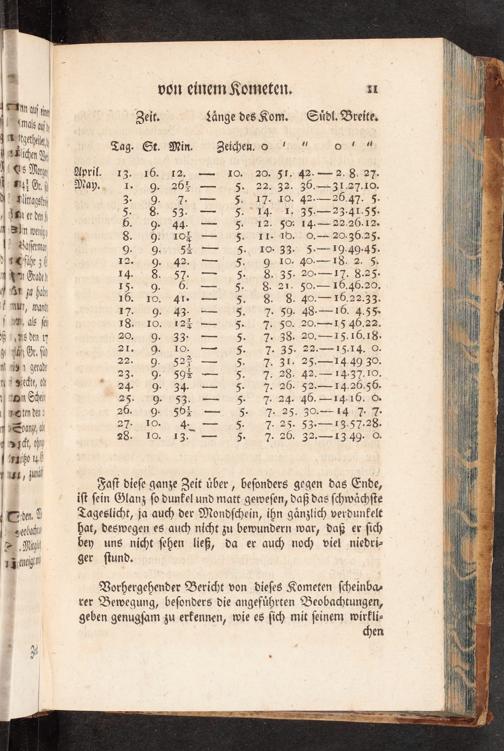 von einem Kometen. 11
Zeit. Länge des Kom. Südl. Breite.
Tag. St. Min. Zeichen. o ‘ “ o ‘ “
April. 13. 16. 12. — 10. 20. 51. 42. — 2. 8. 27.
May. 1. 9. 26½ — 5. 22. 32. 36. — 31.27.10.
3. 9. 7. — 5. 17. 10. 42. — 26.47. 5.
5. 8. 53. — 5. 14. 1. 35. — 23.41.55.
6. 9. 44. — 5. 12. 50. 14. — 22.26.12.
8. 9. 10¼ — 5. 11. 16. 0. — 20.36.25.
9. 9. 5½ — 5. 10. 33. 5. — 19.49.45.
12. 9. 42. — 5. 9 10. 40. — 18. 2. 5.
14. 8. 57. — 5. 8. 35. 20. — 17. 8.25.
15. 9. 6. — 5. 8. 21. 50. — 16.46.20.
16. 10. 41. — 5. 8. 8. 40. — 16.22.33.
17. 9. 43. — 5. 7. 59. 48. — 16. 4.55.
18. 10. 12½ — 5. 7. 50. 20. — 15 46.22.
20. 9. 33. — 5. 7. 38. 20. — 15.16.18.
21. 9. 10. — 5. 7. 35. 22. — 15.14. 0.
22. 9. 52⅔ — 5. 7. 31. 25. — 14 49 30.
23. 9. 59½ — 5. 7. 28. 42. — 14.37.10.
24. 9. 34. — 5. 7. 26. 52. — 14.26.56.
25. 9. 53. — 5. 7. 24. 46. — 14.16. 0.
26. 9. 56½ — 5. 7. 25. 30. — 14 7. 7.
27. 10. 4. — 5. 7. 25. 53. — 13.57.28.
28. 10. 13. — 5. 7. 26. 32. — 13 49. 0.
Fast diese ganze Zeit über, besonders gegen das Ende,
ist sein Glanz so dunkel und matt gewesen, daß das schwächste
Tageslicht, ja auch der Mondschein, ihn gänzlich verdunkelt
hat, deswegen es auch nicht zu bewundern war, daß er sich
bey uns nicht sehen ließ, da er auch noch viel niedri-
ger stund.
Vorhergehender Bericht von dieses Kometen scheinba-
rer Bewegung, besonders die angeführten Beobachtungen,
geben genugsam zu erkennen, wie es sich mit seinem wirkli-
chen